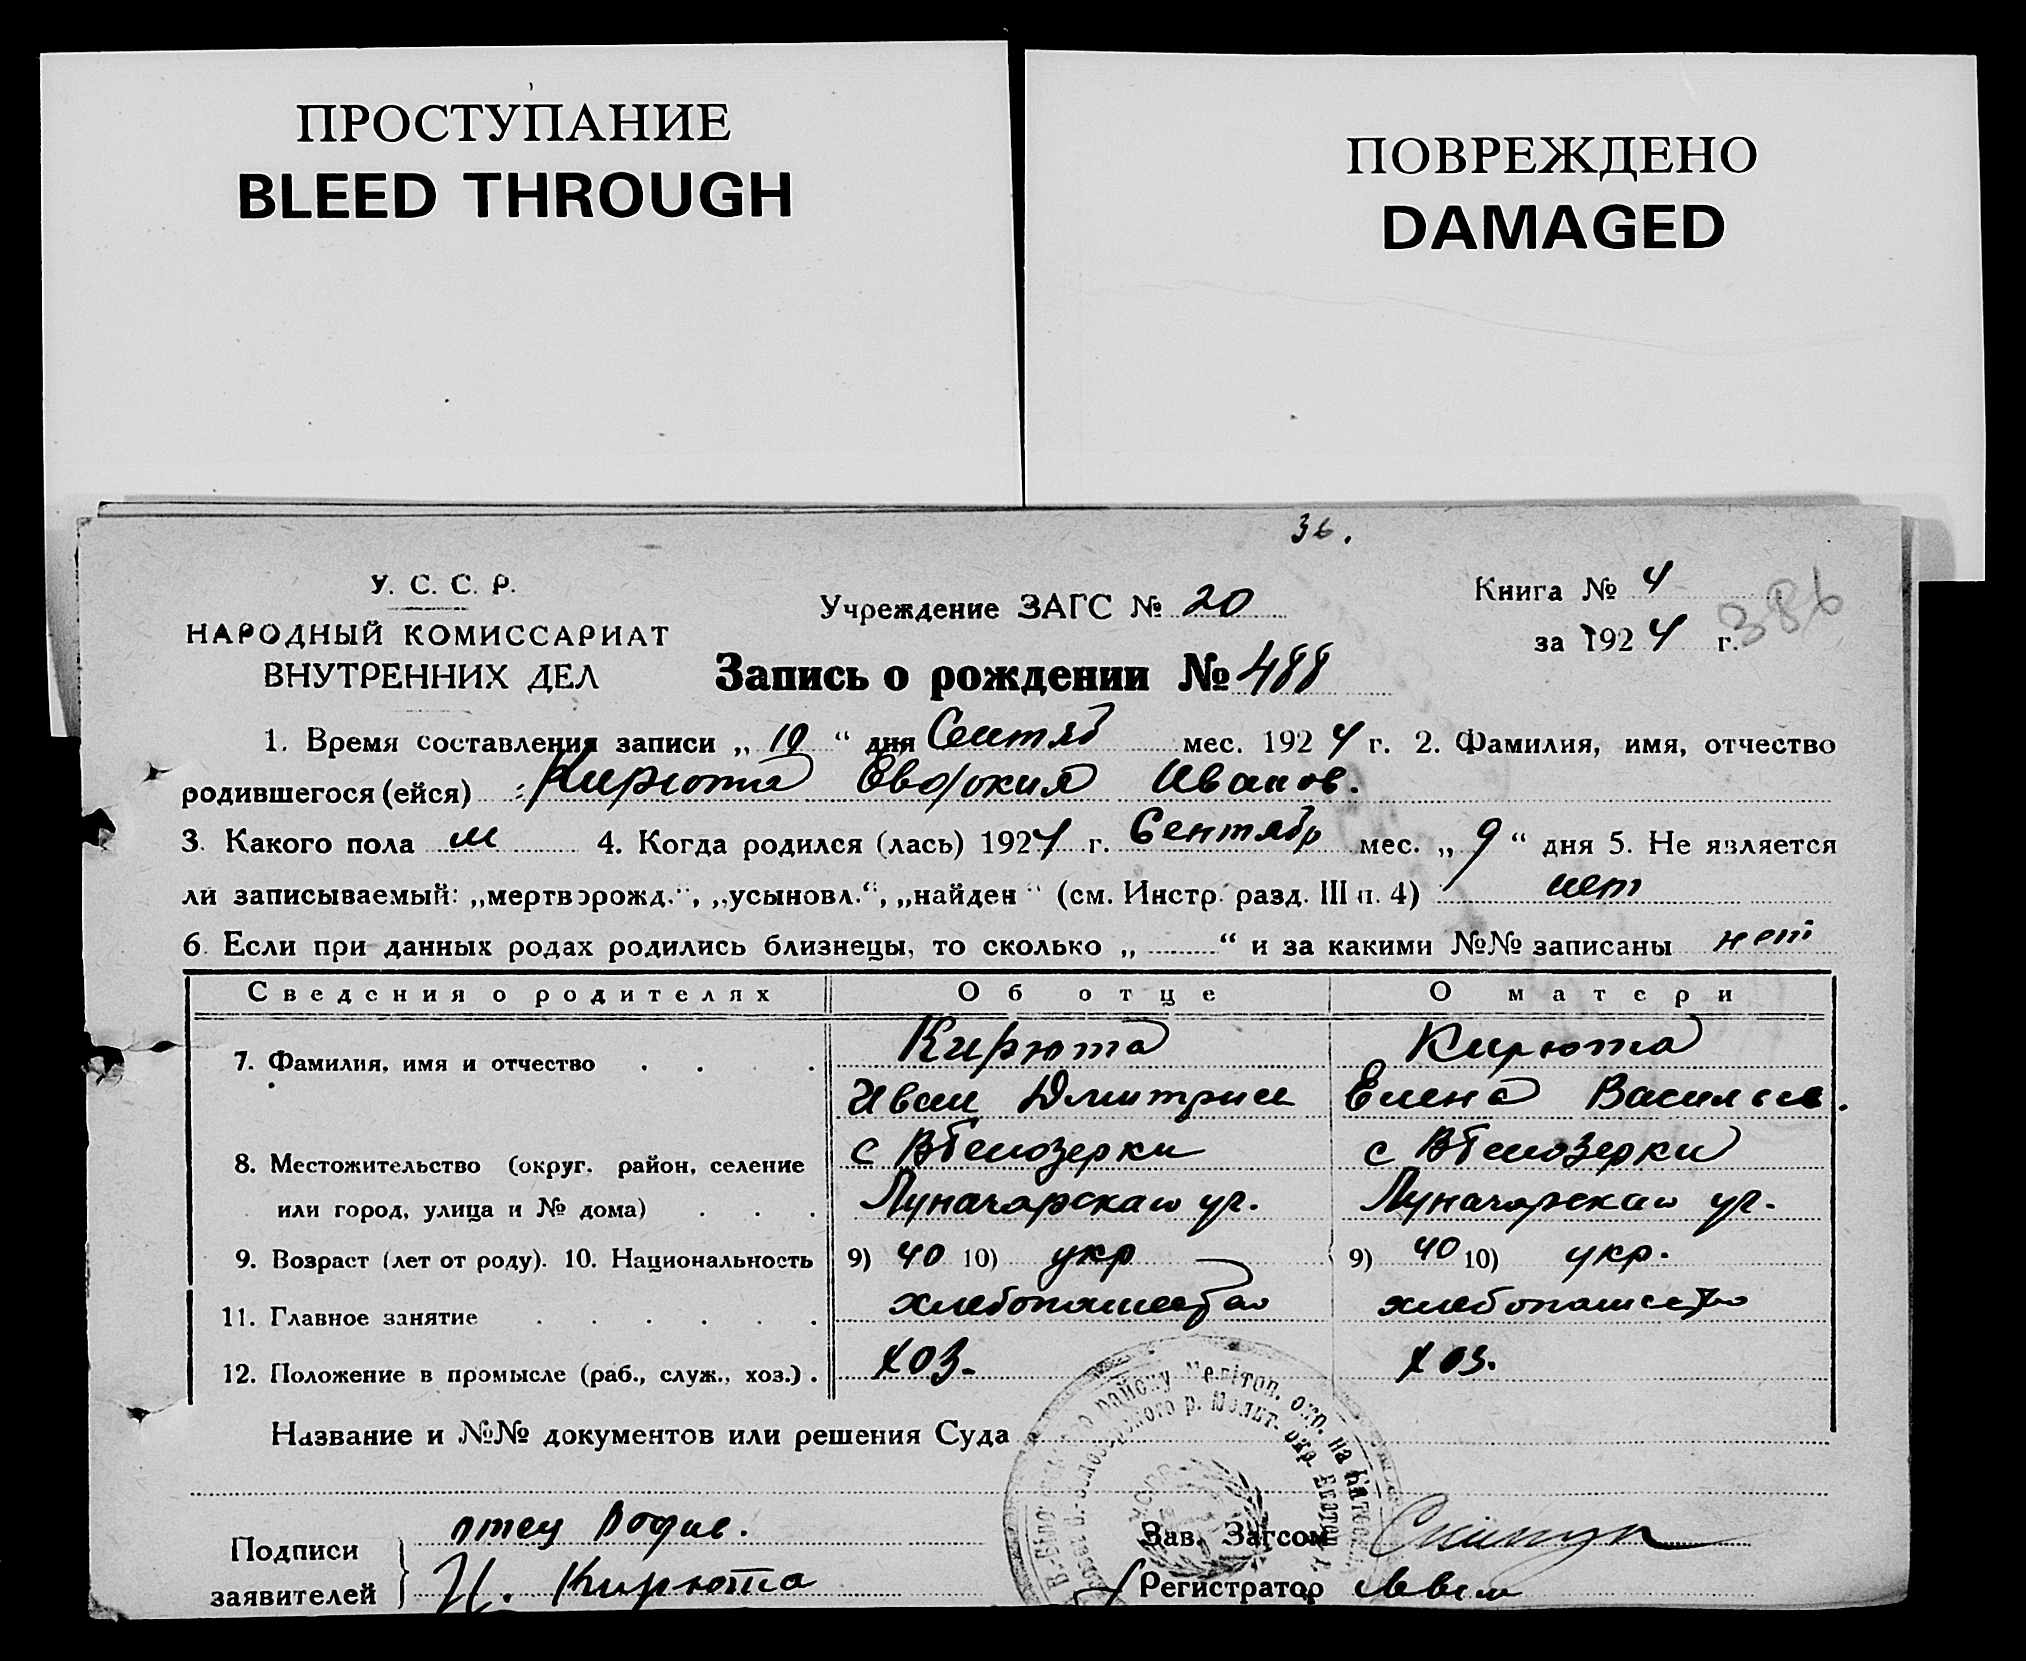 ПРОСТУПАНИЕ
BLEED THROUGH
ПОВРЕЖДЕНО
DAMAGED
36.
У. С. С. Р.
НАРОДНЫЙ КОМИССАРИАТ
ВНУТРЕННИХ ДЕЛ
Учреждение ЗАГС № 20
Книга № 4
за 1924 г.
386
Запись о рождении № 488
1. Время составления записи „ 10 “ дня Сентяб мес. 1924 г. 2. Фамилия, имя, отчество
родившегося (ейся) Кирюта Евдокия Иванов.
3. Какого пола м 4. Когда родился (лась) 1924 г. Сентябр мес. „ 9 “ дня 5. Не является
ли записываемый: „мертворожд.“, „усыновл.“, „найден“ (см. Инстр. разд. III п. 4) нет
6. Если при данных родах родились близнецы, то сколько „ “ и за какими №№ записаны нет
Сведения о родителях Об отце О матери
7. Фамилия, имя и отчество Кирюта Кирюта
Иван Дмитриев Елена Васильев.
8. Местожительство (округ, район, селение с ВБелозерки с ВБелозерки
или город, улица и № дома) Луначарская ул. Луначарская ул.
9. Возраст (лет от роду). 10. Национальность 9) 40 10) укр 9) 40 10) укр.
11. Главное занятие хлебопашество хлебопашество
12. Положение в промысле (раб., служ., хоз.) хоз. хоз.
Название и №№ документов или решения Суда
Подписи
заявителей
отец
И. Кирюта
Зав. Загсом
Регистратор
району Мелітоп. окр. на Катеринос
р. Мелит. окр.
УСРР